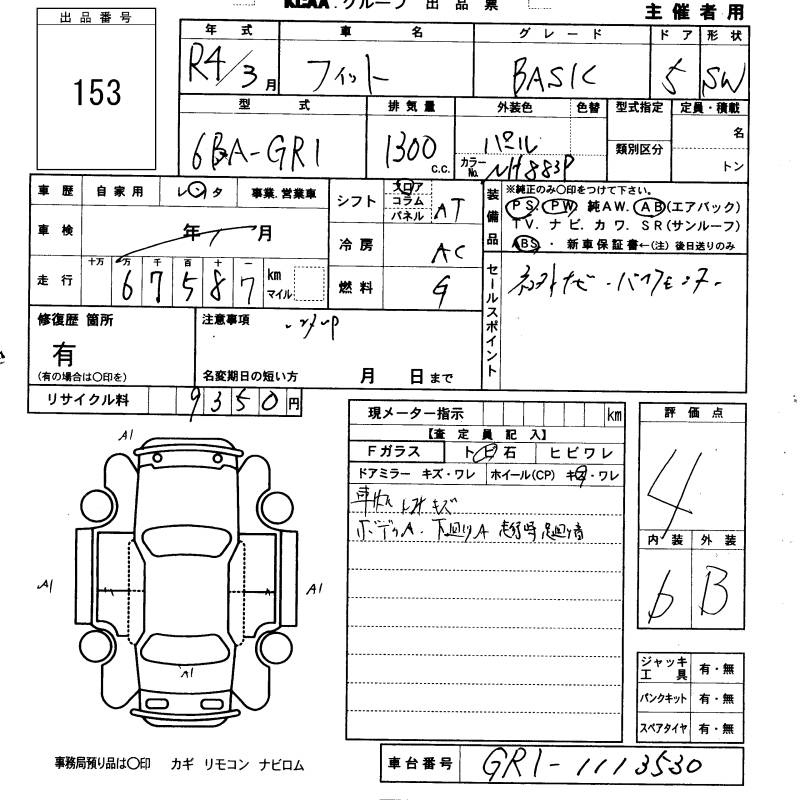 KLAA.グループ 出品票
主催者用
出品番号
153
年式 車名 グレード ドア 形状
R4/3月 フィット BASIC 5 SW
型式 排気量 外装色 色替 型式指定 定員・積載
6BA-GR1 1300 C.C. パール 類別区分 名
カラーNo. NH883P トン
車歴 自家用 レンタ 事業.営業車
車検 年 月
走行 十万 万 千 百 十 一 km マイル
6 7 5 8 7
シフト フロア コラム パネル AT
冷房 AC
燃料 G
装備品 ※純正のみ〇印をつけて下さい。
PS. PW. 純AW. AB(エアバック)
TV. ナビ. カワ. SR(サンルーフ)
ABS. 新車保証書←(注) 後日送りのみ
セールスポイント
修復歴 箇所
有
(有の場合は〇印を)
注意事項
名変期日の短い方 月 日まで
リサイクル料 9350円
現メーター指示 km
【査定員記入】
Fガラス トビ石 ヒビワレ
ドアミラー キズ・ワレ ホイール(CP) キズ・ワレ
キズ
ボディA. 下廻りA
評価点
4
内装 外装
6 B
A1
A1
A1
A1
ジャッキ工具 有・無
パンクキット 有・無
スペアタイヤ 有・無
事務局預り品は〇印 カギ リモコン ナビロム
車台番号 GR1-1113530